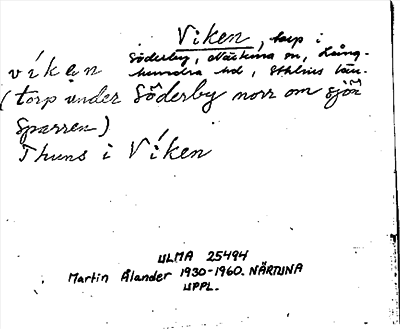 Viken, torp i
Söderby, Närtuna sn, Lång-
hundra hd, Sthlms län.
víkẹn
(torp under Söderby norr om sjön
Sparren)
Thuns i Víken
ULMA 25494
Martin Ålander 1930-1960. NÄRTUNA
UPPL.